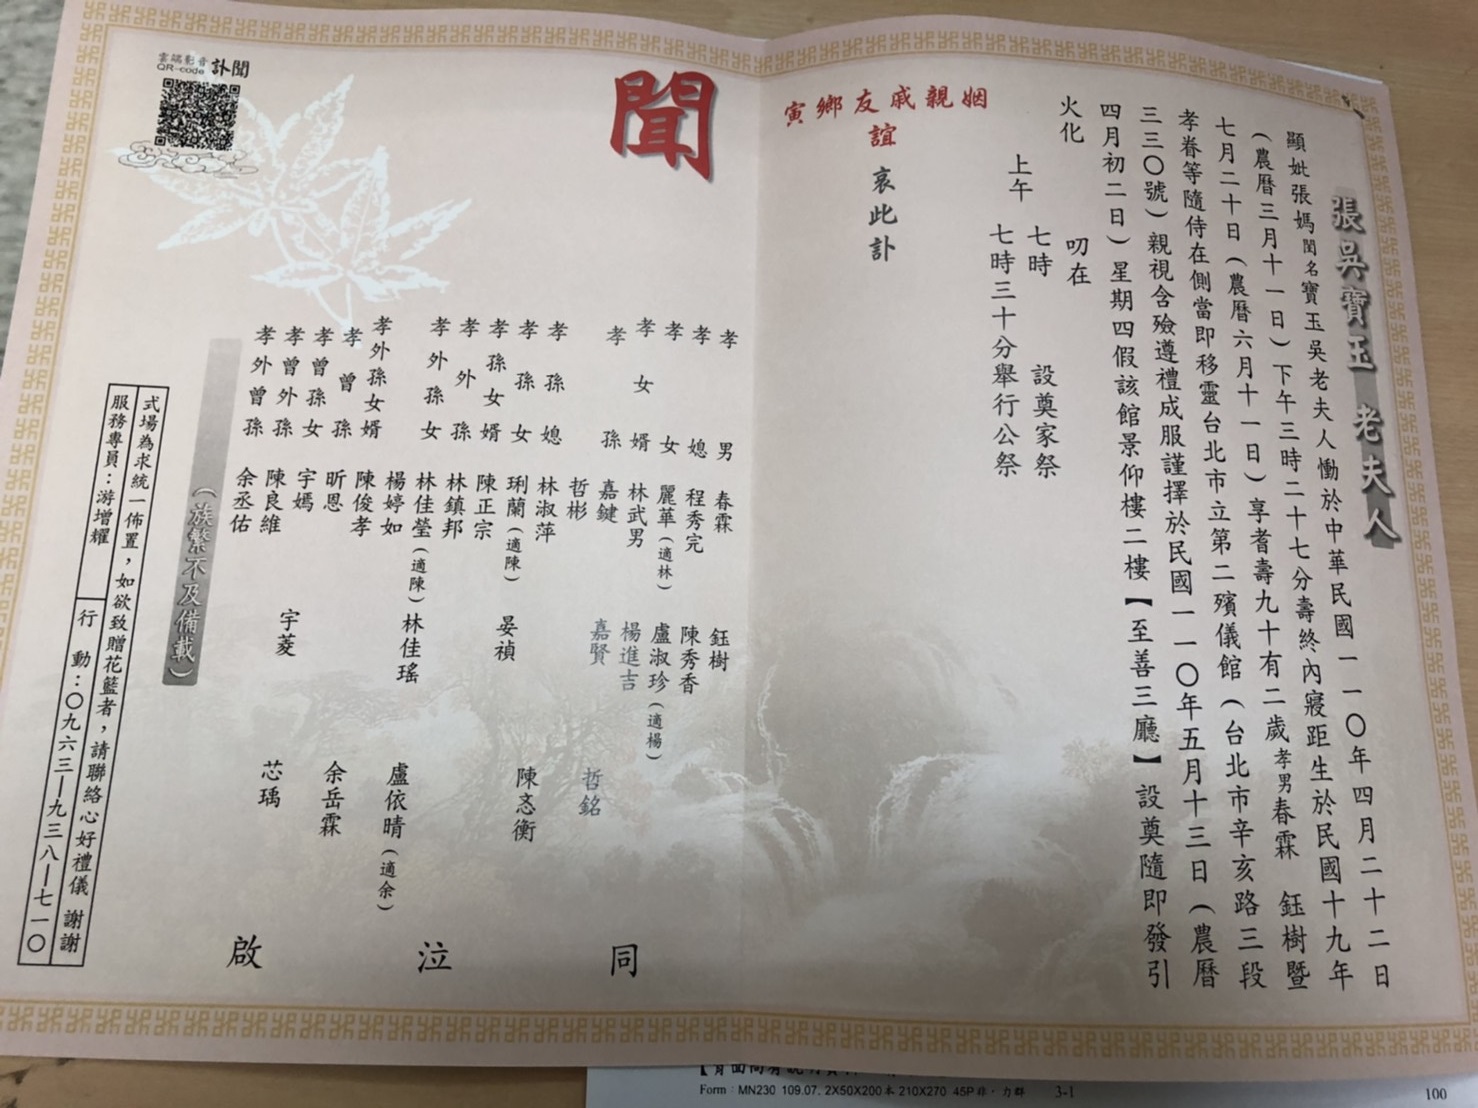 張吳寶玉 老夫人
顯妣張媽閨名寶玉吳老夫人慟於中華民國一一〇年四月二十二日
(農曆三月十一日)下午三時二十七分壽終內寢距生於民國十九年
七月二十日(農曆六月十一日)享耆壽九十有二歲孝男春霖 鈺樹暨
孝眷等隨侍在側當即移靈台北市立第二殯儀館(台北市辛亥路三段
三三〇號)親視含殮遵禮成服謹擇於民國一一〇年五月十三日(農曆
四月初二日)星期四假該館景仰樓二樓【至善三廳】設奠隨即發引
火化 叨在
上午 七時 設奠家祭
七時三十分舉行公祭
姻親戚友鄉寅
誼 哀此訃
聞
孝男 春霖 鈺樹
孝媳 程秀完 陳秀香
孝女 麗華(適林) 盧淑珍(適楊)
孝女婿 林武男 楊進吉
孝孫 嘉鍵 嘉賢
哲彬 哲銘
孝孫媳 林淑萍
孝孫女 琍蘭(適陳) 晏禎 陳忞衡
孝孫女婿 陳正宗
孝外孫 林鎮邦
孝外孫女 林佳瑩(適陳) 林佳瑤
楊婷如 盧依晴(適余)
孝外孫女婿 陳俊孝 余岳霖
孝曾孫 昕恩
孝曾孫女 宇嫣 宇菱 芯瑀
孝曾外孫 陳良維
孝外曾孫 余丞佑
(族繁不及備載)
同 泣 啟
式場為求統一佈置,如欲致贈花籃者,請聯絡心好禮儀 謝謝
服務專員:游增耀 行動:〇九六三—九三八—七一〇
雲端影音
QR-code 訃聞
Form:MN230 109.07. 2X50X200本 210X270 45P非·力群 3-1 100